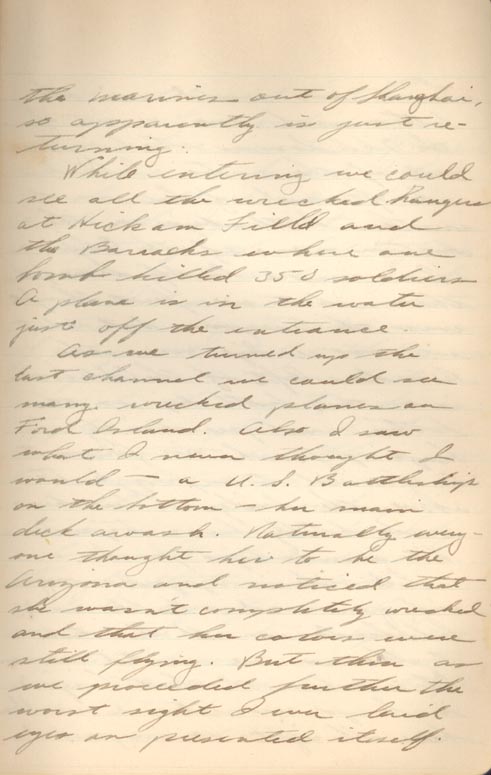 the marines out of Shanghai,
so apparently is just re-
turning.
While entering we could
see all the wrecked Hangers
at Hickam Field and
the Barracks where one
bomb killed 350 soldiers
A plane is in the water
just off the entrance.
As we turned up the
last channel we could see
many wrecked planes on
Ford Island. Also I saw
what I never thought I
would - a U.S. Battleship
on the bottom - her main
deck awash. Naturally every-
one thought her to be the
Arizona and noticed that
she wasn't completely wrecked
and that her colors were
still flying. But then as
we proceeded further the
worst sight I ever laid
eyes on presented itself.